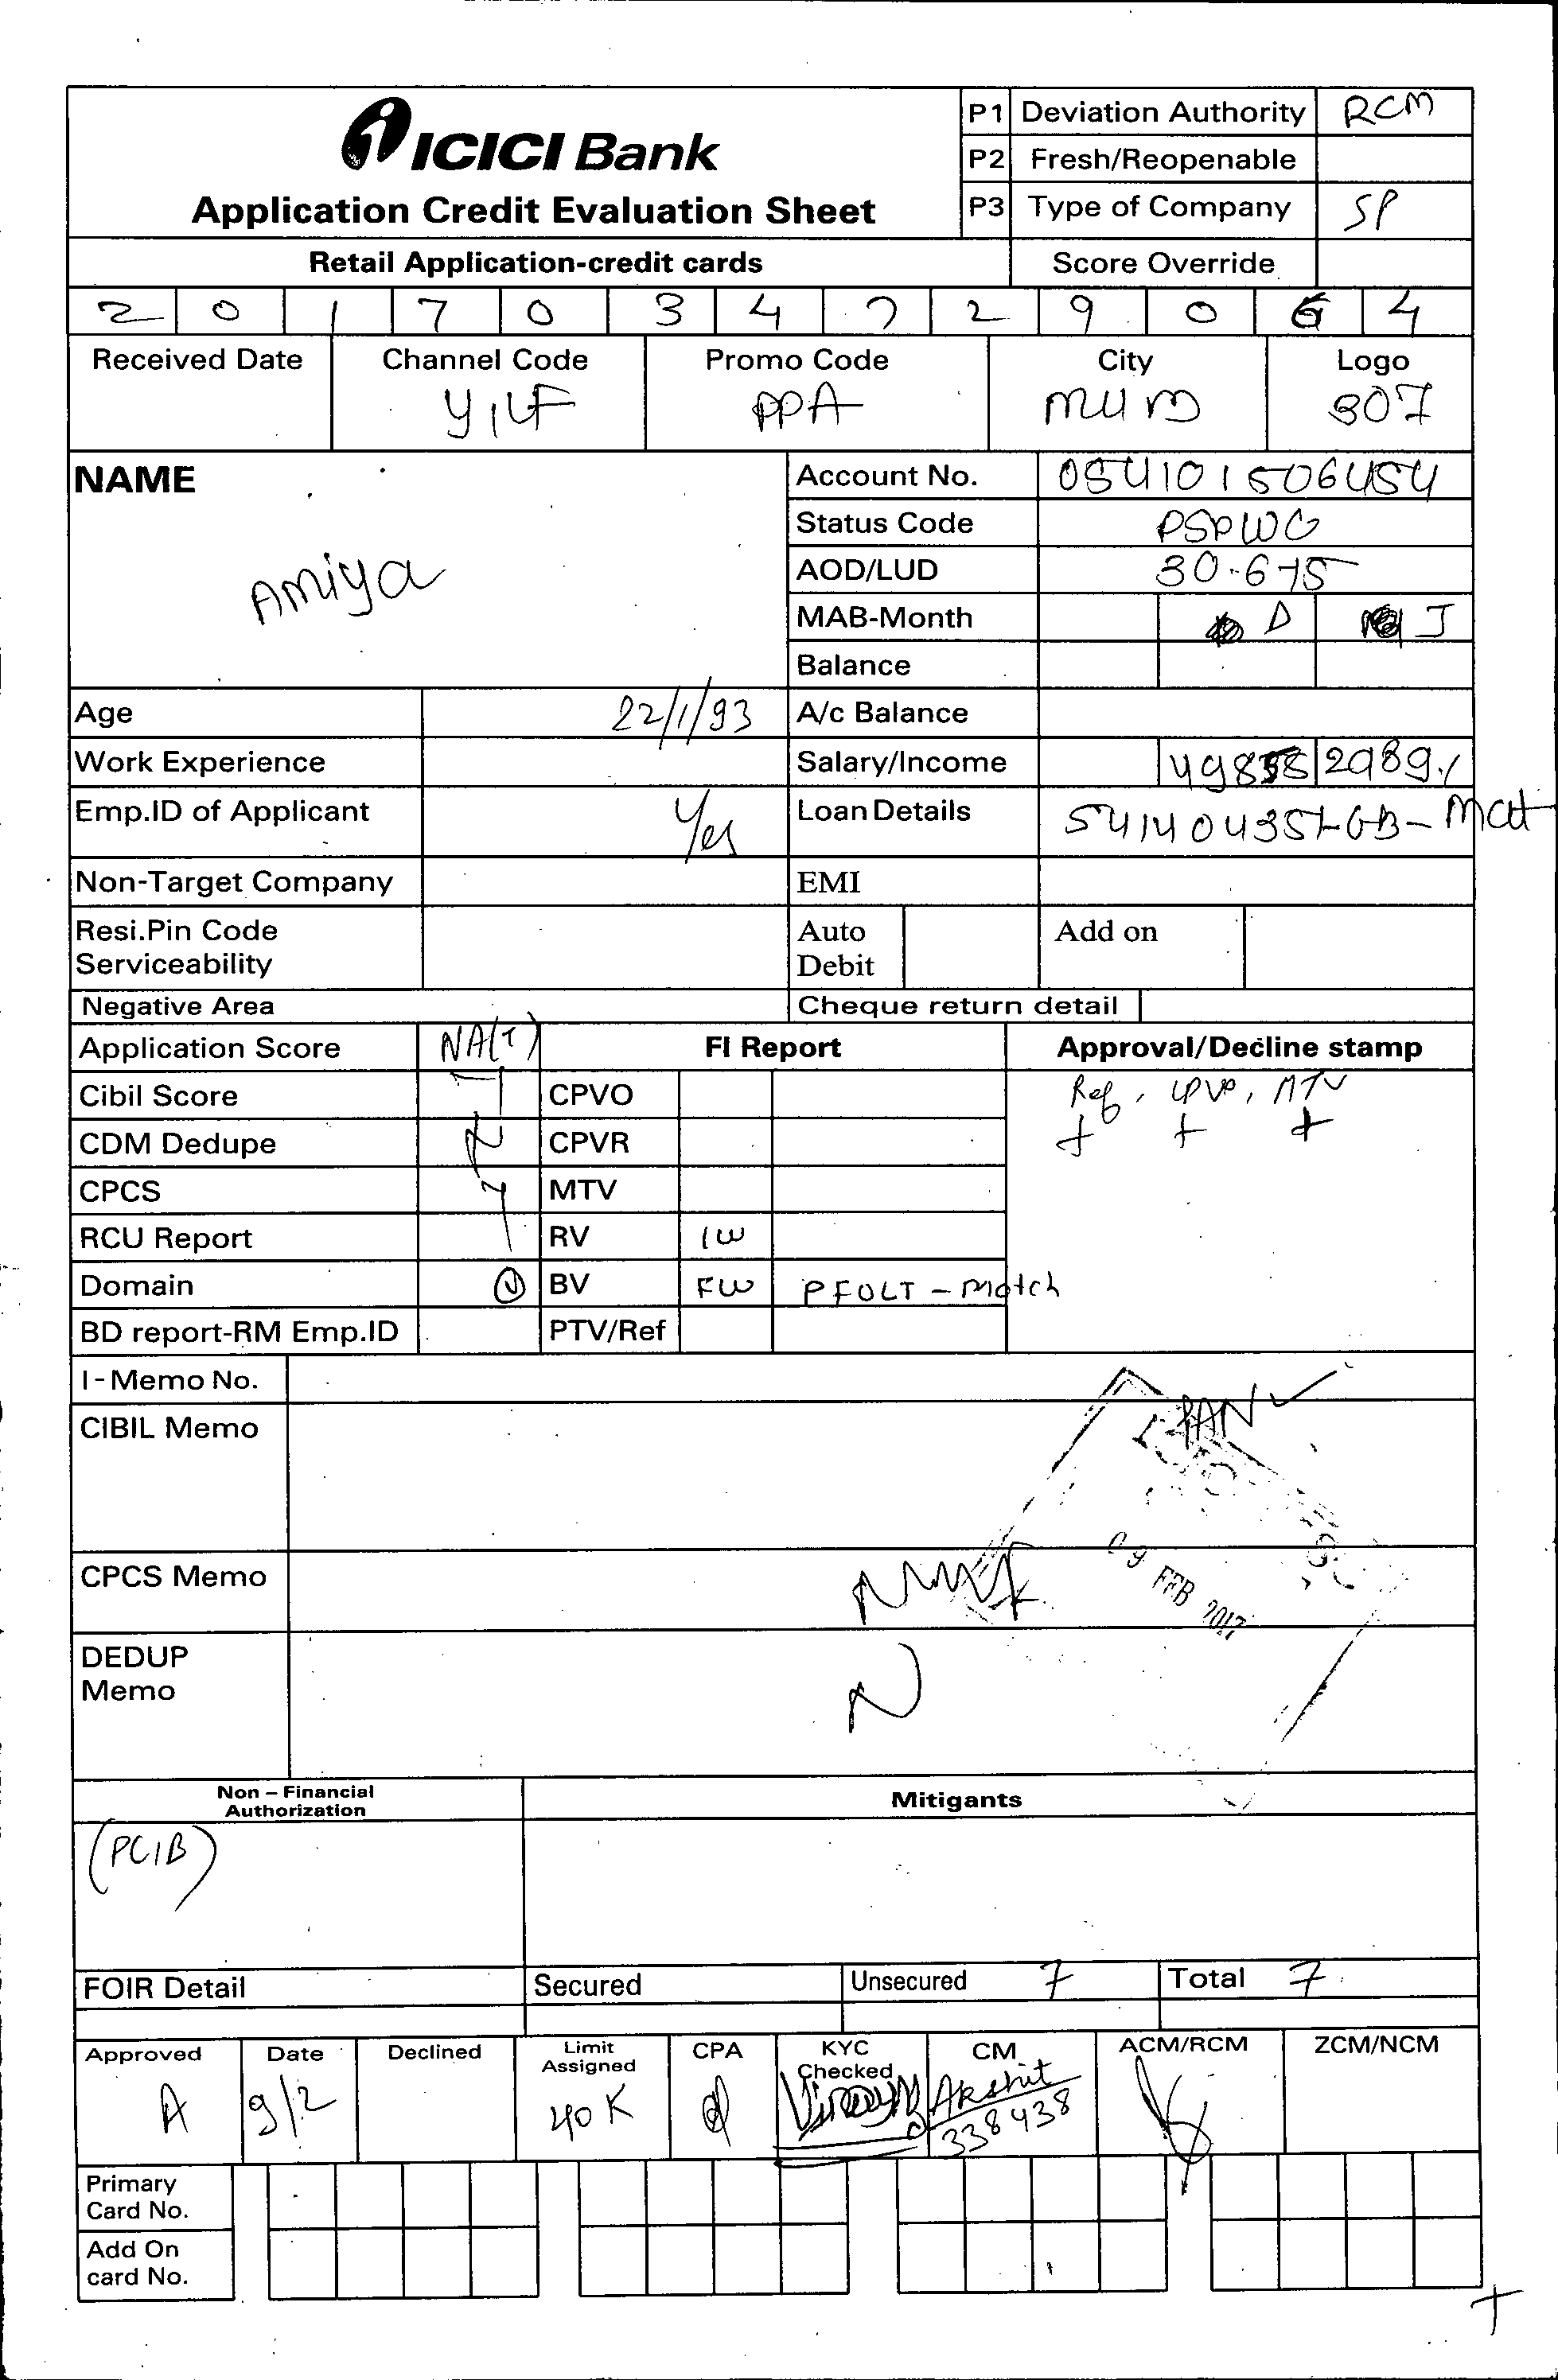 ICICI Bank
Application Credit Evaluation Sheet
P1 Deviation Authority RCM
P2 Fresh/Reopenable
P3 Type of Company SP
Retail Application-credit cards Score Override
2 0 1 7 0 3 4 7 2 9 0 6 4
Received Date Channel Code Promo Code City Logo
PPA MUM 307
NAME
Amiya
Account No. 054101506454
Status Code
AOD/LUD 30-6-15
MAB-Month D J
Balance
Age 22/1/93 A/c Balance
Work Experience Salary/Income
Emp.ID of Applicant Yes Loan Details
Non-Target Company EMI
Resi.Pin Code Serviceability Auto Debit Add on
Negative Area Cheque return detail
Application Score NA(T) FI Report Approval/Decline stamp
Cibil Score CPVO Ref, CPVP, MTV
CDM Dedupe CPVR + + +
CPCS MTV
RCU Report RV IW
Domain N BV FW PFOLT - Match
BD report-RM Emp.ID PTV/Ref
I-Memo No.
PAN
CIBIL Memo
09 FEB 2017
CPCS Memo
DEDUP Memo N
Non-Financial Authorization Mitigants
(PCIB)
FOIR Detail Secured Unsecured 7 Total 7
Approved Date Declined Limit Assigned CPA KYC Checked CM ACM/RCM ZCM/NCM
A 9/2 40K Akshit
338438
Primary Card No.
Add On card No.